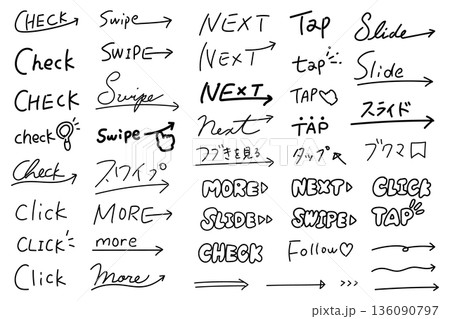 CHECK Swipe NEXT Tap Slide
Check SWIPE NEXT tap Slide
CHECK Swipe NEXT TAP スライド
check Swipe Next TAP ブクマ
Check スワイプ つづきを見る タップ
Click MORE MORE NEXT CLICK
CLICK more SLIDE SWIPE TAP
Click More CHECK Follow
136090797